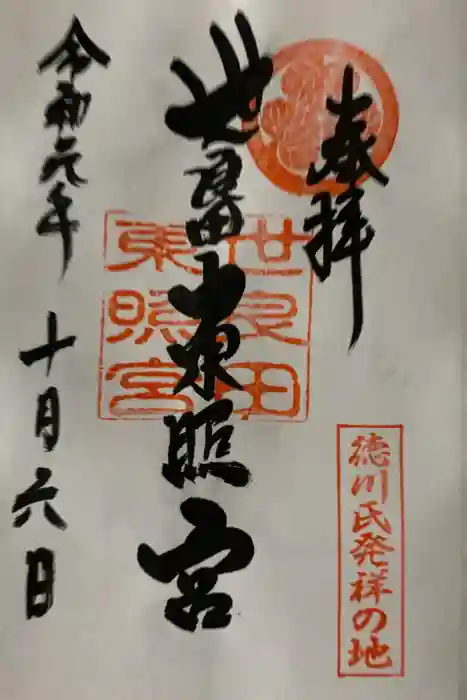 奉拝
徳川氏発祥の地
世良田東照宮
世良田
東照宮
令和元年十月六日